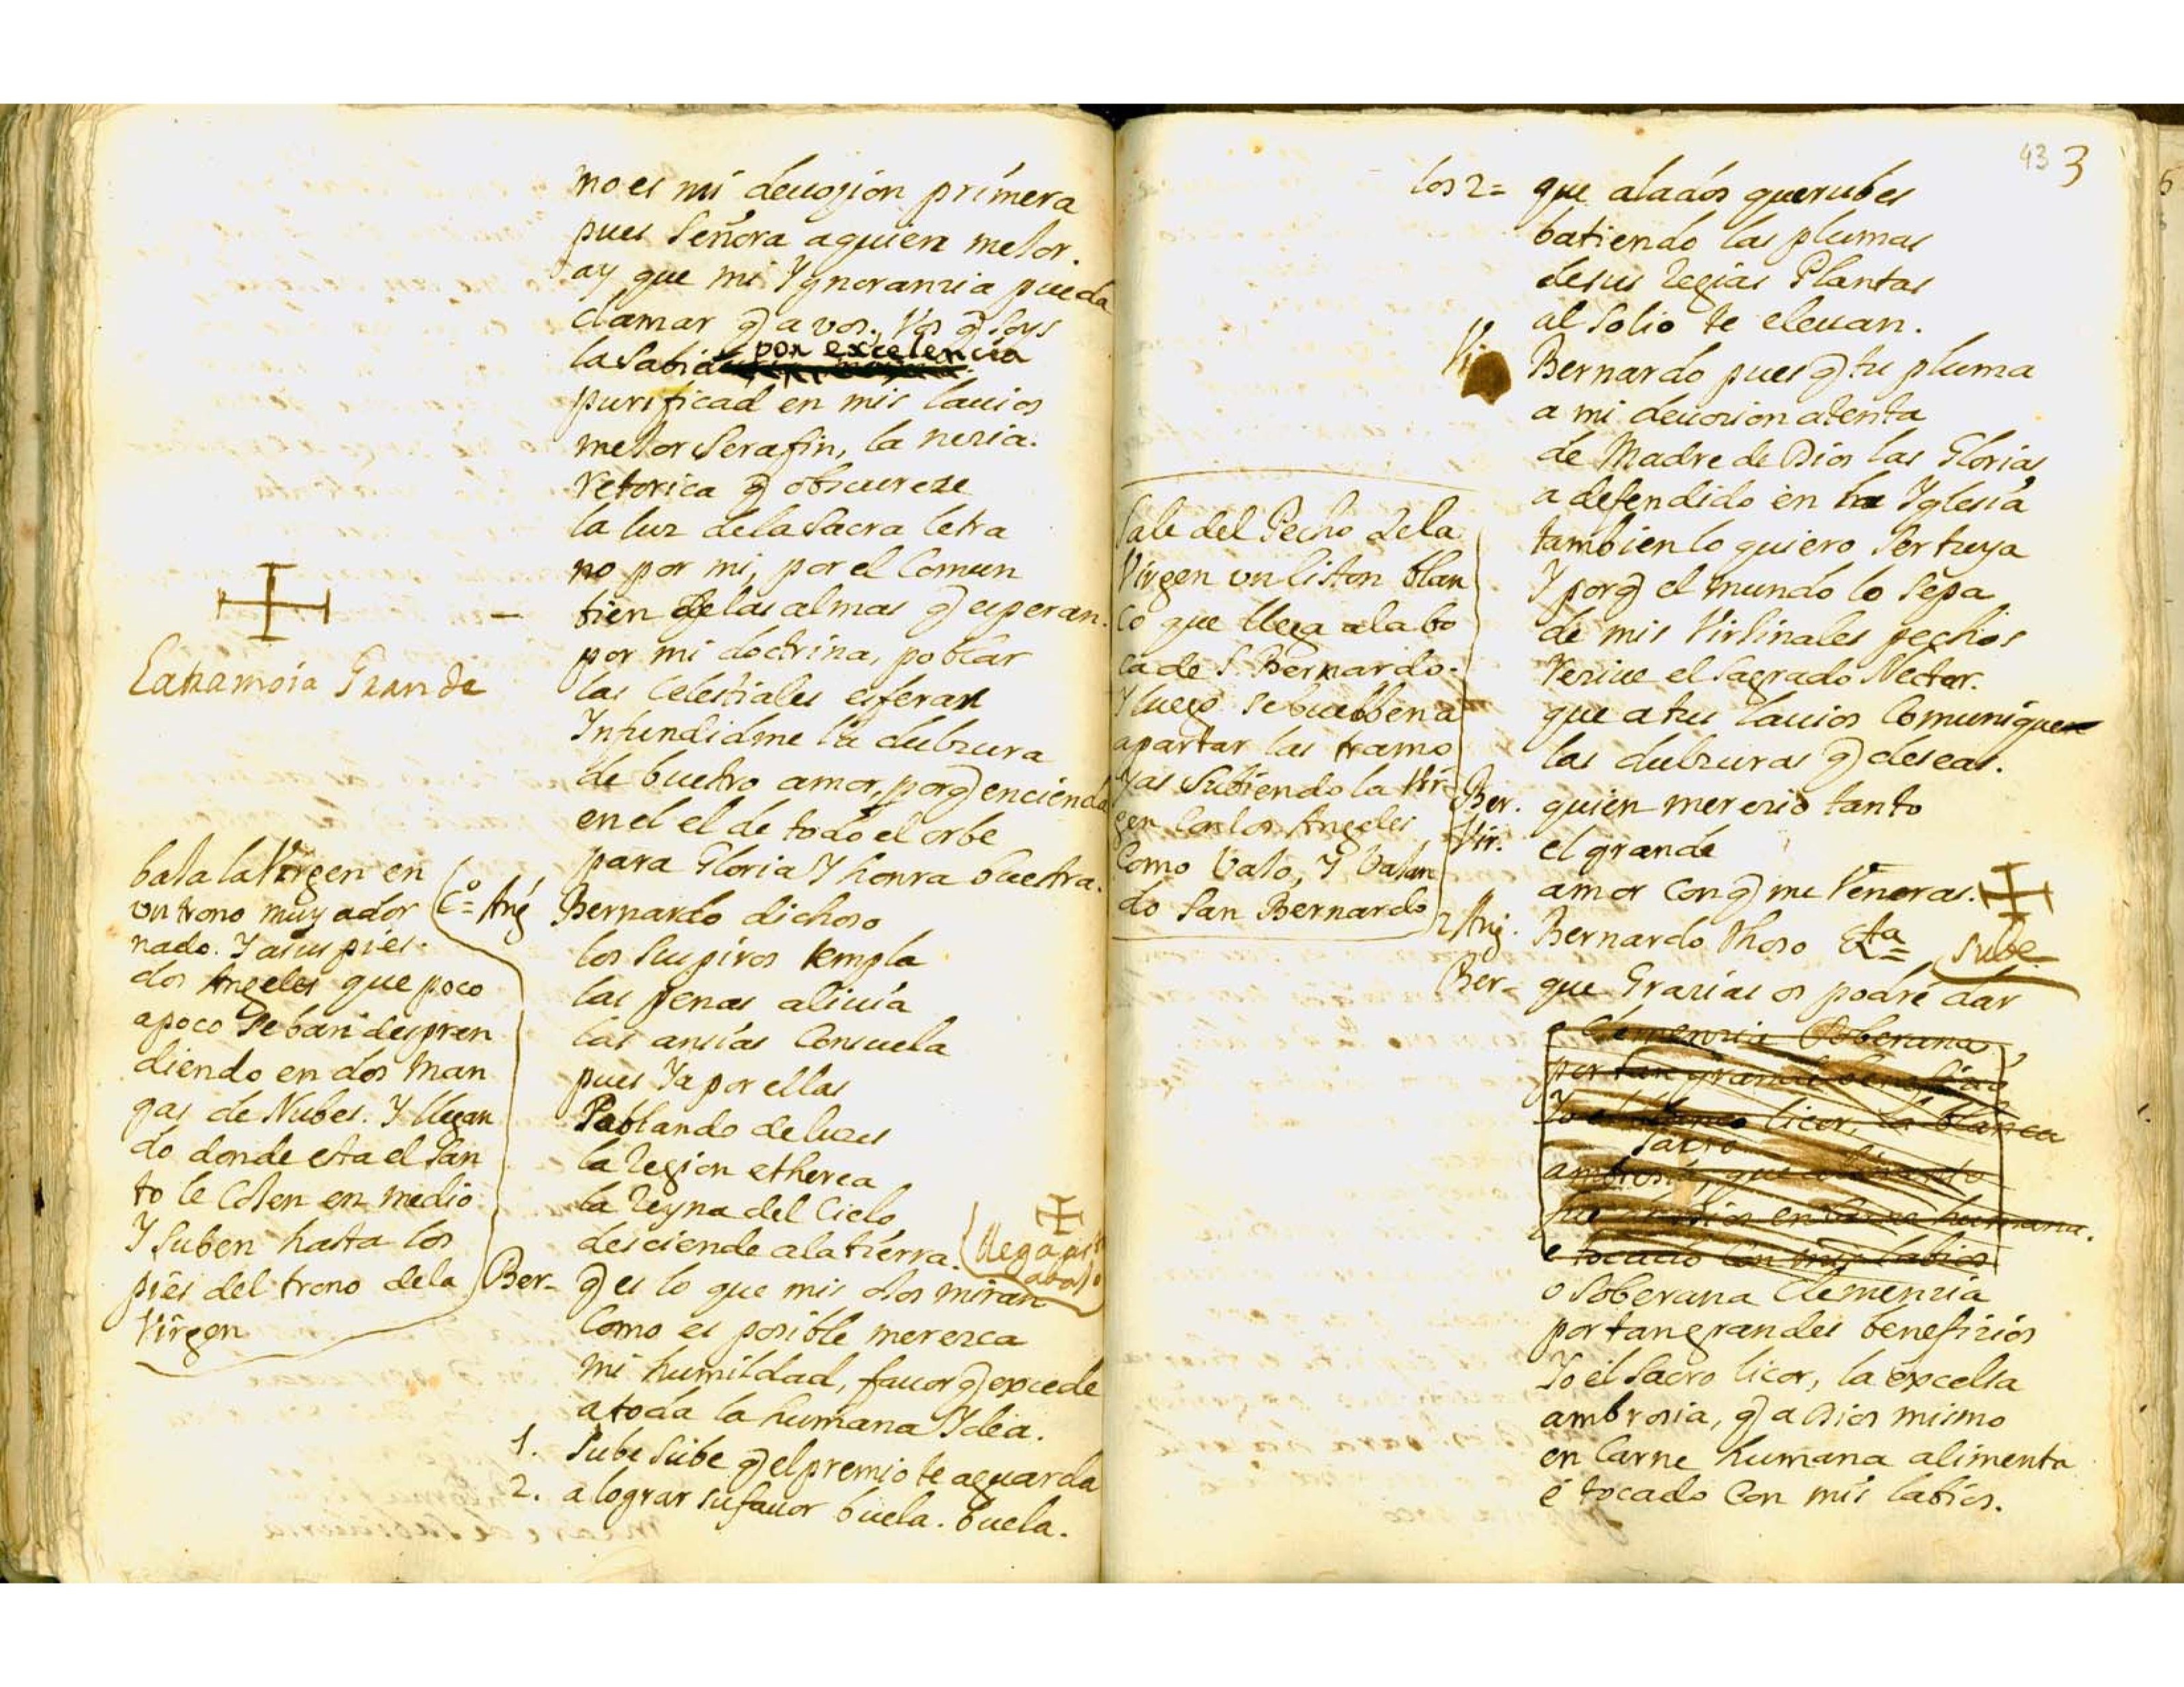 no es mi deuozion primera
pues Señora a quien mejor.
ay que mi Ygnoranzia pueda
clamar q̃ a vos. Vos q̃ soys
la Sabia por excelencia
purificad en mis lauios
mejor Serafin, la nezia.
retorica q̃ obscureze
la luz de la Sacra letra
no por mi, por el Comun
bien de las almas q̃ esperan.
por mi doctrina, poblar
las Celestiales esferas
Infundidme la dulzura
de buestro amor, porq̃ encienda
en el el de todo el orbe
para Gloria Y honra buestra.
La tramoia Grande
baja la Virgen en
un trono muy ador
nado. Y a sus pies.
dos Angeles que poco
a poco se ban despren
diendo en dos man
gas de Nubes. Y llegan
do donde esta el San
to le Cojen en medio
Y Suben hasta los
pies del trono de la
Virgen
Co= Ang Bernardo dichoso
los suspiros templa
las penas aliuia
las ansias Consuela
pues Ya por ellas
Poblando de luzes
la region etherea
la reyna del Cielo
desciende a la tierra.
llega
abajo
Ber- q̃ es lo que mis ojos miran
Como es posible merezca
mi humildad, fauor q̃ excede
a toda la humana Ydea.
1. Sube Sube q̃ el premio te aguarda
2. a lograr su fauor buela. buela.
43 3
los 2= que alados querubes
batiendo las plumas
de sus regias Plantas
al Solio te eleuan.
Vi Bernardo pues q̃ tu pluma
a mi deuozion atenta
de Madre de Dios las Glorias
a defendido en la Yglesia
tambien lo quiero Ser tuya
Y porq̃ el mundo lo Sepa
de mis Virjinales pechos
reziue el Sagrado Nectar.
que a tus lauios Comunique
las dulzuras q̃ deseas.
Sale del Pecho de la
Virgen un liston blan
co que llega a la bo
ca de S. Bernardo.
Y luego se buelben a
apartar las tramo
yas Subiendo la Vir
gen Con los Angeles
Como bajo, Y bajan
do San Bernardo
Ber. quien merezio tanto
Vir. el grande
amor Con q̃ me Veneras.
2 Ang. Bernardo dhoso Eta= Sube
Ber- que Grazias os podre dar
o Clemenzia Soberana
por tan grande benefizio
licor, la blanca
sacro
ambrosia, que
en Carne humana.
e tocado Con mis labios
o Soberana Clemenzia
por tan grandes benefizios
Yo el Sacro licor, la excelsa
ambrosia, q̃ a Dios mismo
en Carne humana alimenta
e tocado Con mis labios.